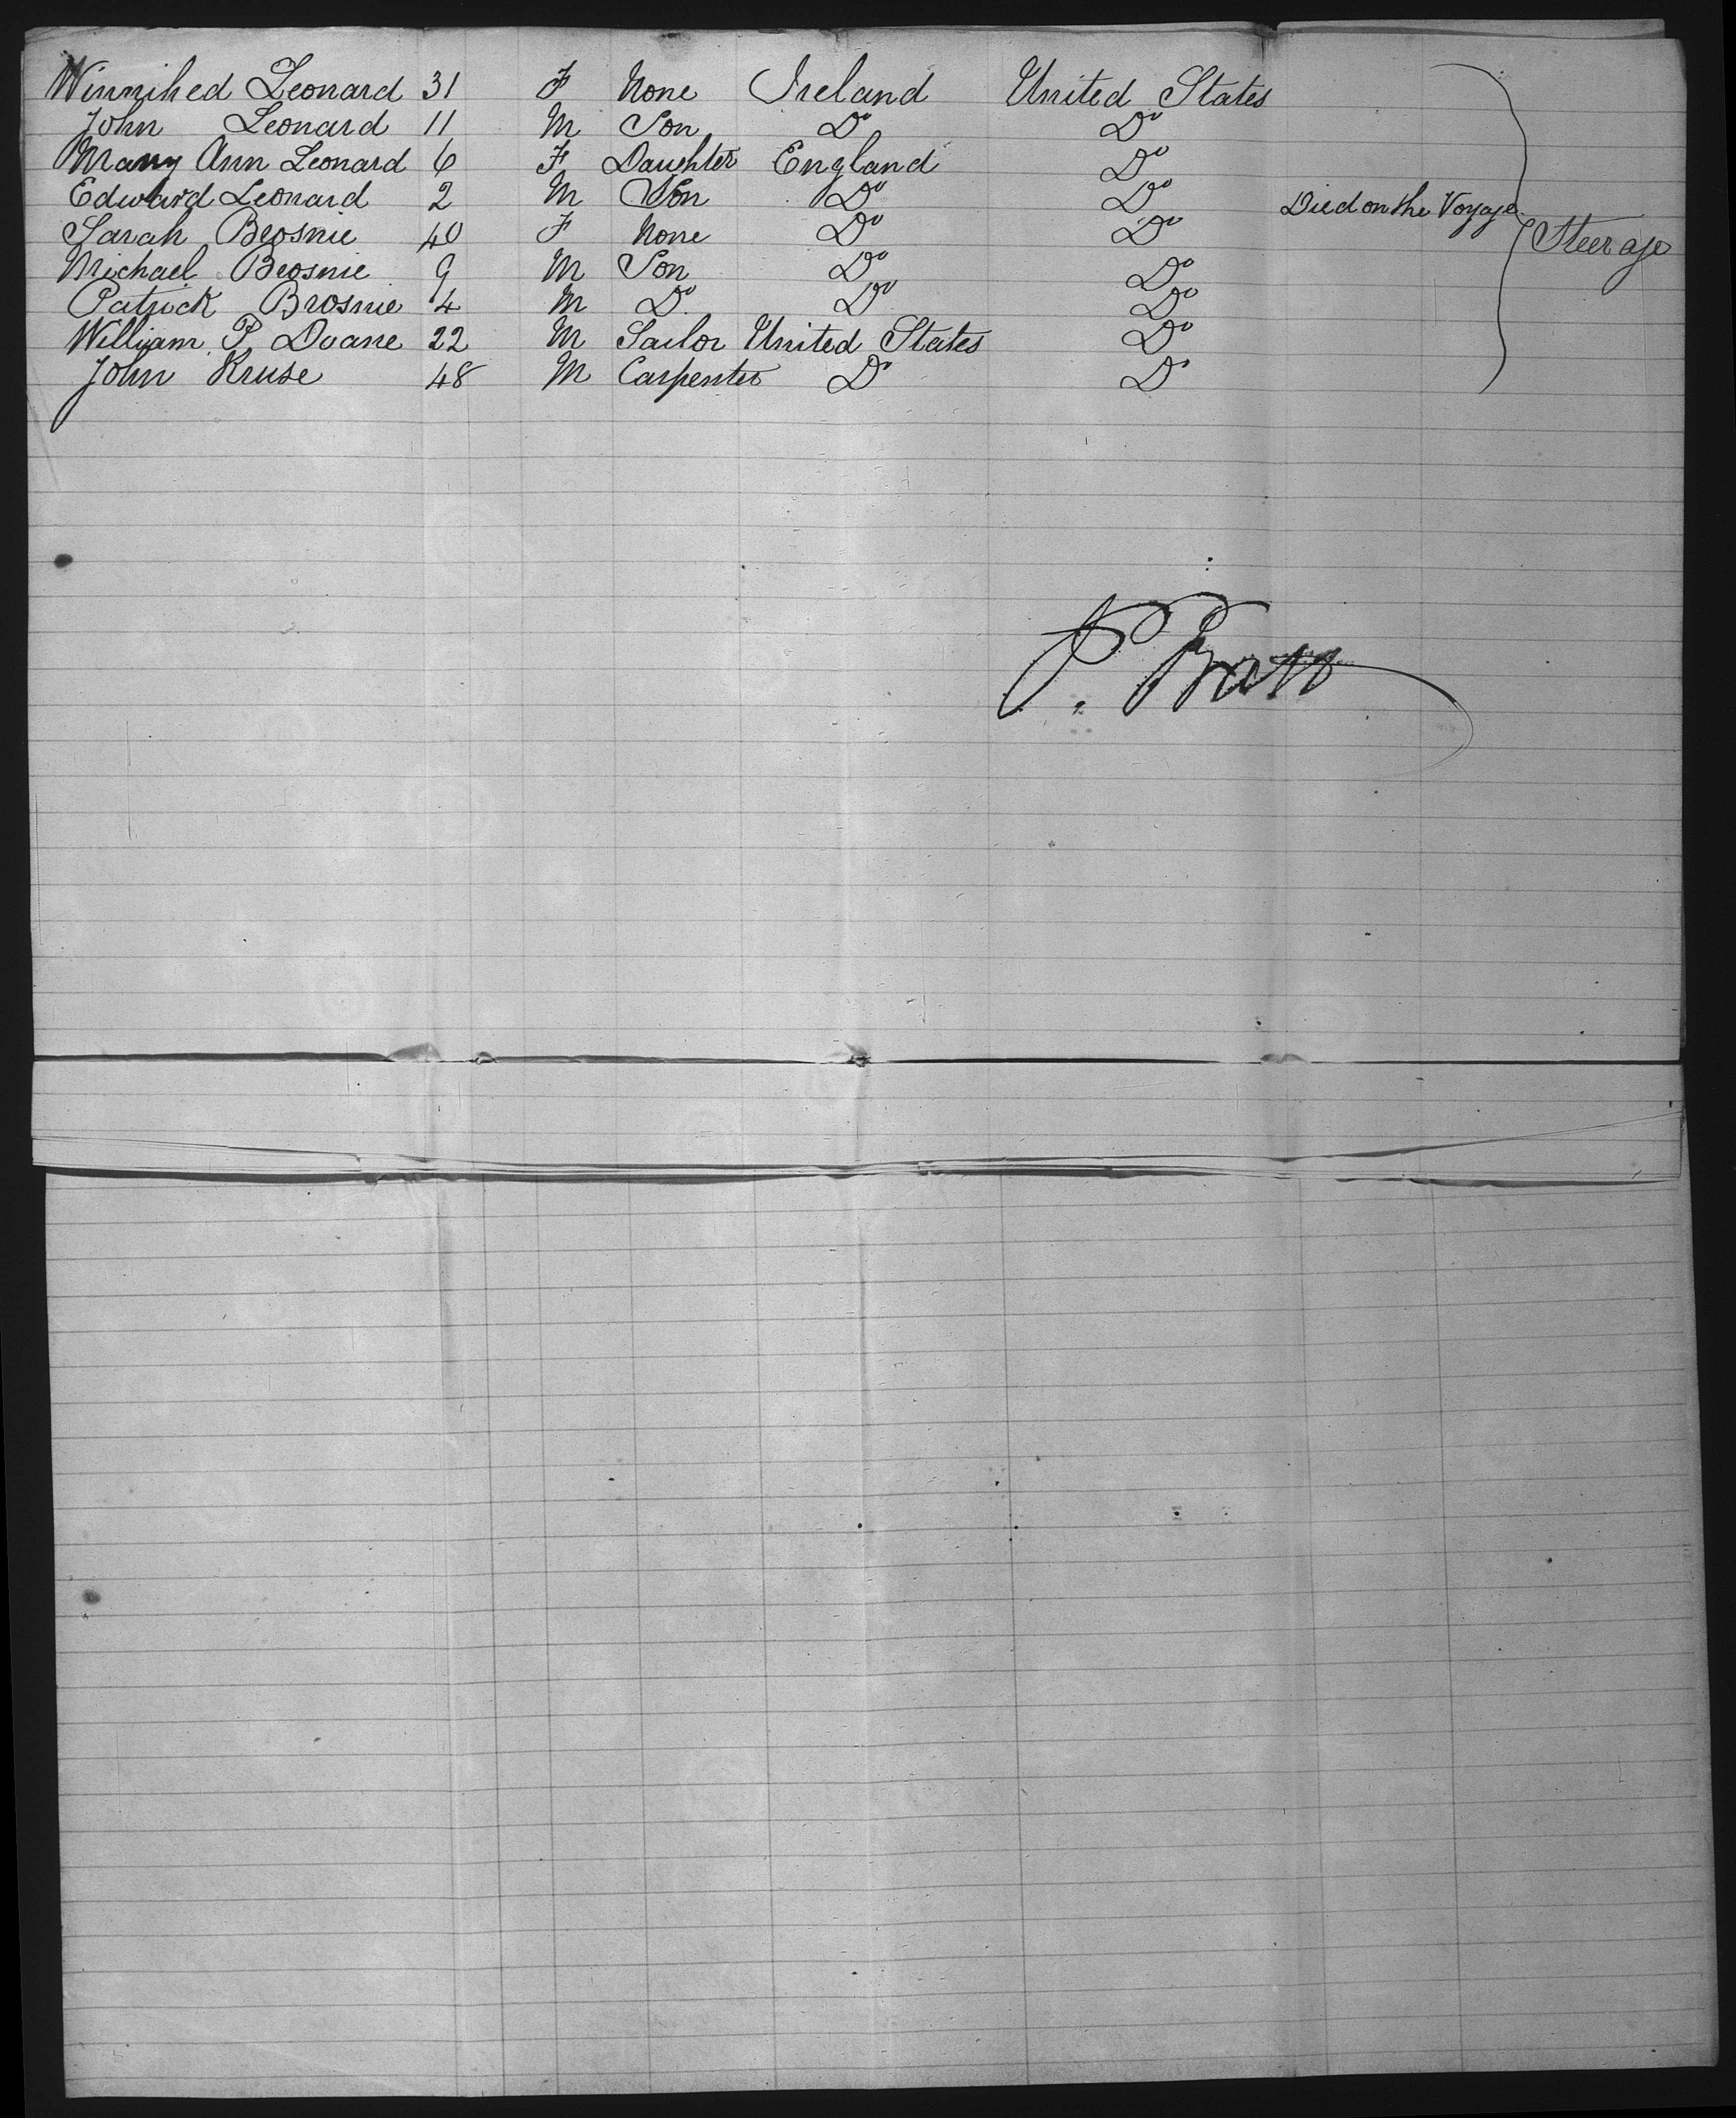 Winnihed Leonard 31 F None Ireland United States
John Leonard 11 M Son Do Do
Mary Ann Leonard 6 F Daughter England Do
Edward Leonard 2 M Son Do Do Died on the Voyage
Sarah Brosnie 40 F None Do Do Steerage
Michael Brosnie 9 M Son Do Do
Patrick Brosnie 4 M Do Do Do
William P. Doane 22 M Sailor United States Do
John Kruse 48 M Carpenter Do Do